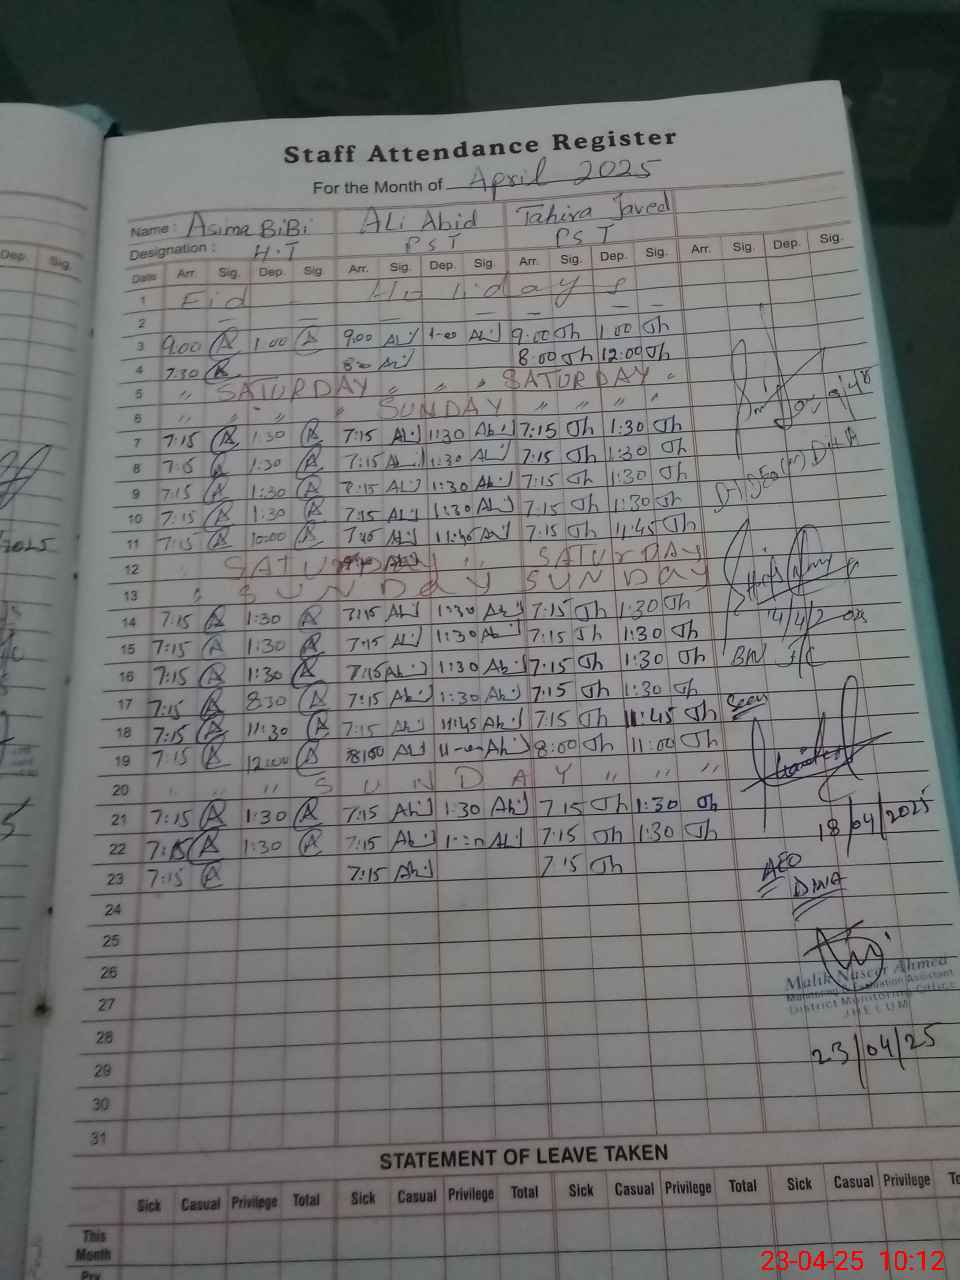 Staff Attendance Register
For the Month of April 2025
Name : Asima BiBi ALi Abid Tahira Javed
Designation : H.T PST PST
Dep. Sig.
Date Arr. Sig. Dep. Sig. Arr. Sig. Dep. Sig. Arr. Sig. Dep. Sig. Arr. Sig. Dep. Sig.
1 Eid Holidays
2 — — — — — —
3 9.00 A 1.00 A 9.00 ALi 1-00 ALi 9.00 Th 1.00 Th
4 7.30 ALi 8:00 Th 12:00 Th
5 " SATURDAY " " " SATURDAY "
6 " " " " SUNDAY " " " "
7 7:15 A 1:30 A 7:15 ALi 1:30 Ali 7:15 Th 1:30 Th
8 A 1:30 A 7:15 Ali 1:30 ALi 7:15 Th 1:30 Th
9 7:15 A 1:30 A 7:15 ALi 1:30 Ali 7:15 Th 1:30 Th
10 7:15 A 1:30 A 7:15 ALi 1:30 ALi 7:15 Th 1:30 Th
11 7:15 A 10:00 A ALi 11:45 Ali 7:15 Th 11:45 Th
12 SATURDAY " SATURDAY
13 " SUNDAY SUNDAY
14 7:15 A 1:30 A 7:15 ALi 1:30 Ali 7:15 Th 1:30 Th
14/4/2025
15 7:15 A 1:30 A 7:15 ALi 1:30 Ali 7:15 Th 1:30 Th
16 7:15 A 1:30 A 7:15 Ali 1:30 Ali 7:15 Th 1:30 Th
17 7:15 A 8:30 A 7:15 Ali 1:30 Ali 7:15 Th 1:30 Th
Seen
18 7:15 A 11:30 A 7:15 Ali 11:45 Ali 7:15 Th 11:45 Th
19 7:15 A 12:00 A 8:00 ALi 11-00 Ali 8:00 Th 11:00 Th
20 " " " SUNDAY " " "
21 7:15 A 1:30 A 7:15 Ali 1:30 Ali 7:15 Th 1:30 Th
18/04/2025
22 7:15 A 1:30 A 7:15 Ali ALi 7:15 Th 1:30 Th
23 7:15 A 7:15 Ali 7:15 Th
AEO
DMA
24
25
26
Malik Naseer Ahmed
Monitoring & Evaluation Assistant
District Monitoring Office
JHELUM
27
28
23/04/25
29
30
31
STATEMENT OF LEAVE TAKEN
Sick Casual Privilege Total Sick Casual Privilege Total Sick Casual Privilege Total Sick Casual Privilege
This
Month
23-04-25 10:12